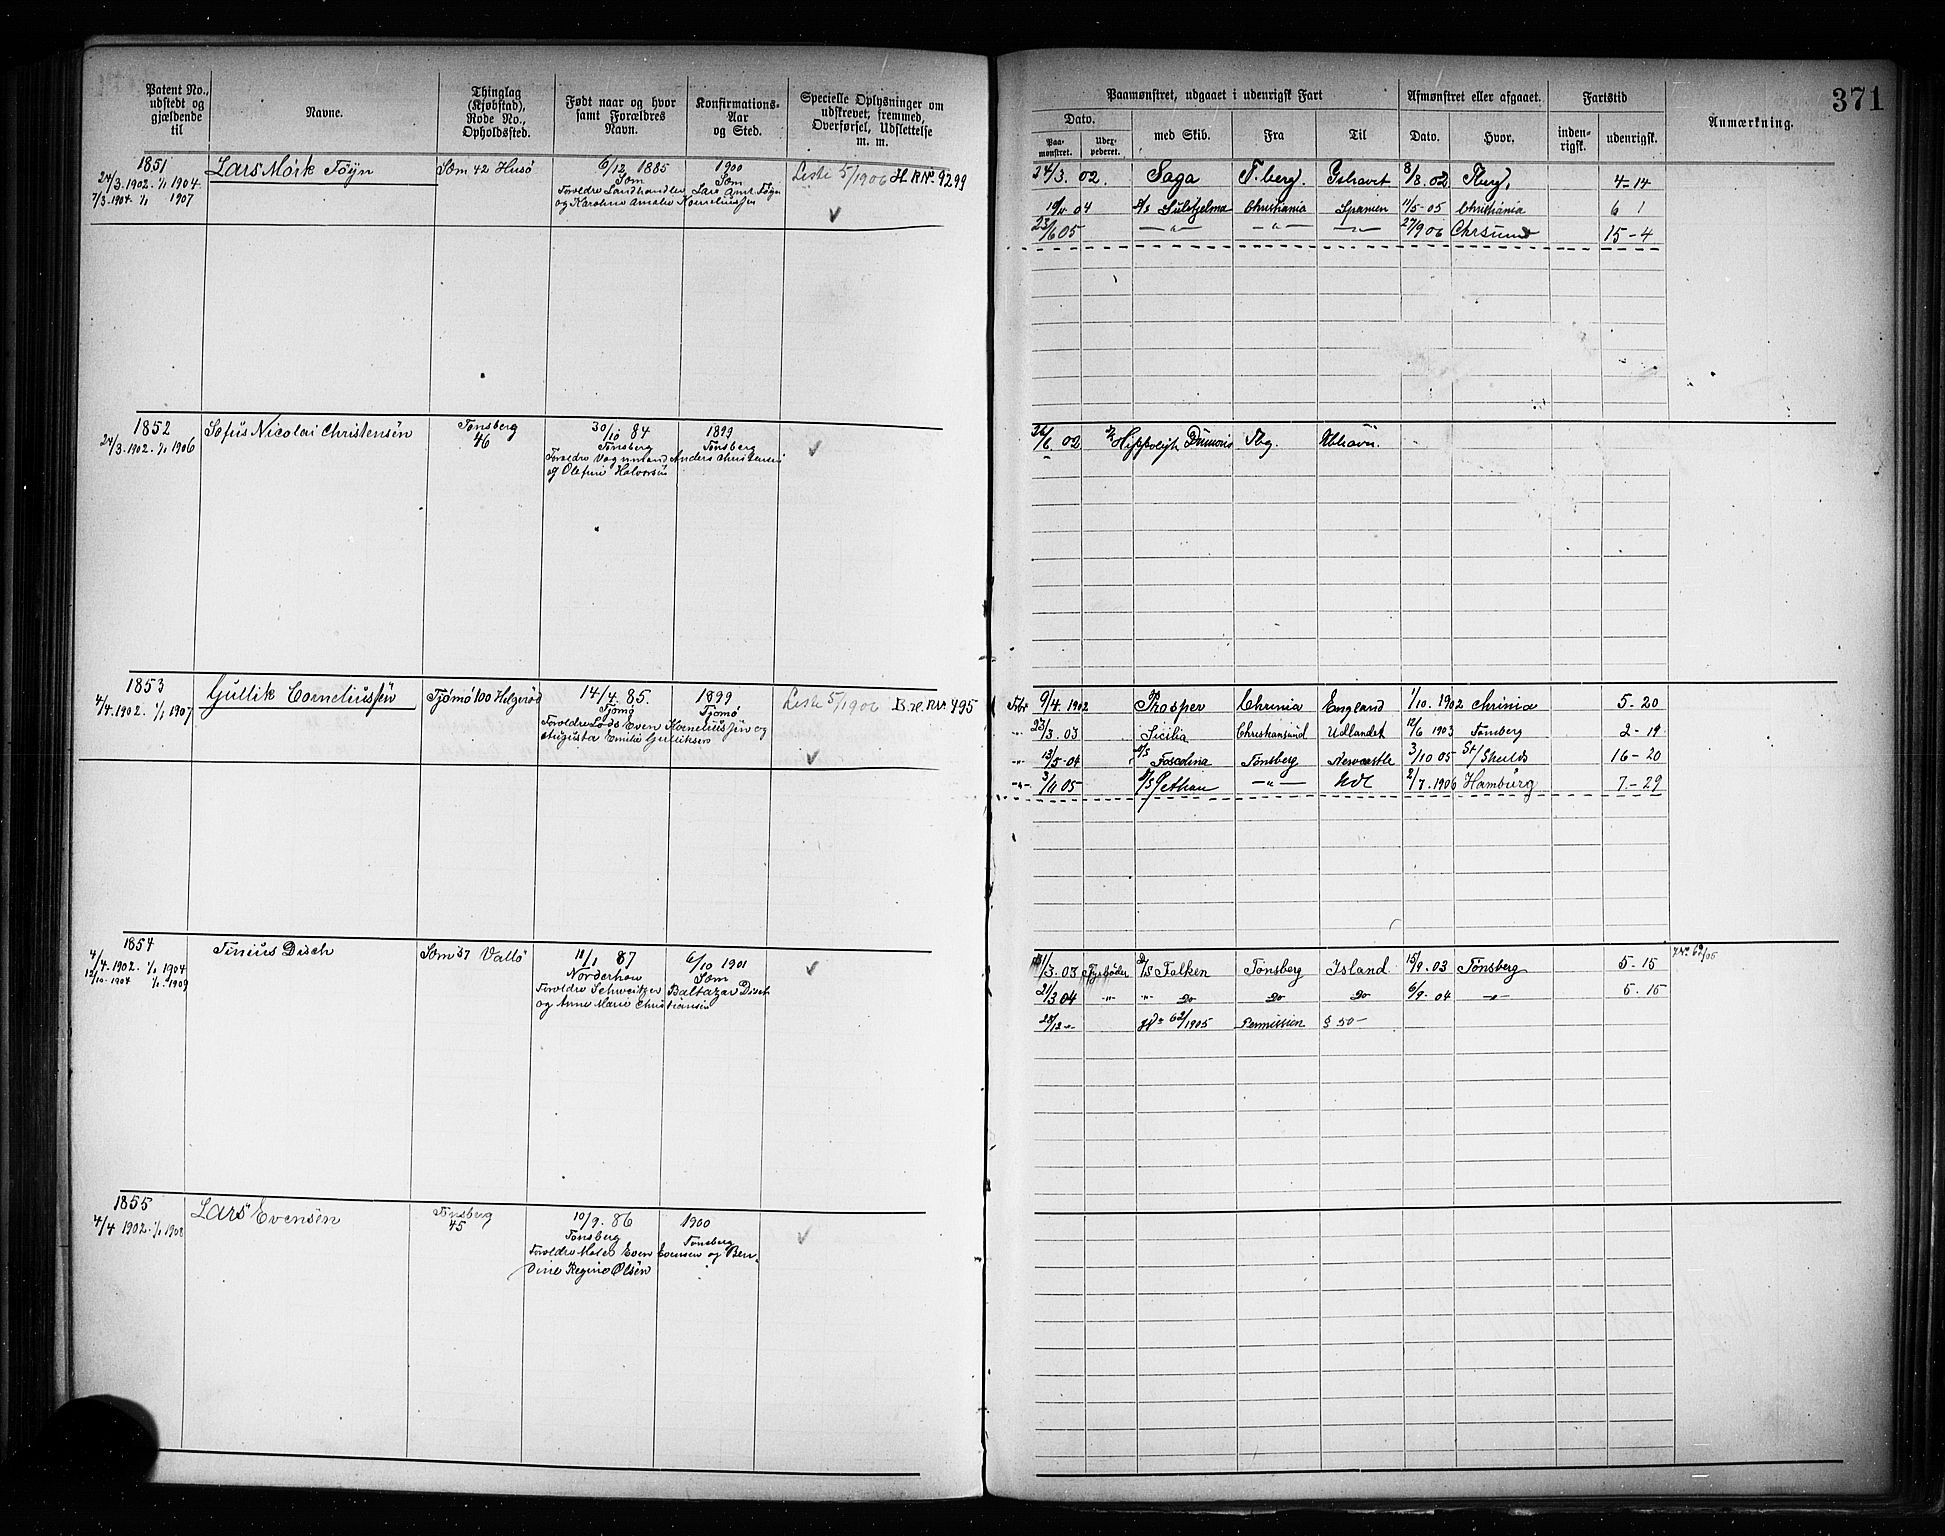 Patent No., udstedt og gjældende til
Navne.
Thinglag (Kjøbstad), Rode No., Opholdssted.
Født naar og hvor samt Forældres Navn.
Konfirmations-Aar og Sted.
Specielle Oplysninger om udskrevet, fremmed, Overførsel, Udslettelse m. m.
Paamønstret, udgaaet i udenrigsk Fart
Afmønstret eller afgaaet.
Fartstid
Anmærkning.
371
Dato.
Paa-mønstret.
med Skib.
Fra
Til
Dato.
Hvor.
inden-rigsk.
udenrigsk.
1851
24/3.1902. 1/1 1904.
7/3.1904. 1/1 1907
Lars Mörk Föyn
Sem 42 Husö
6/12 1885
Sem
1900
Sem
Liste 5/1906 H. R.Nr. 9299
Forældre Landhandler Lars Amt. Föyn
og Karoline Amalie Korneliussen
24/3. 02. Saga T.berg. Ishavet 8/8. 02 Tberg. 4-14
19/11 04 Christiania Spanien 11/5-05 Christiania 6 1
23/6 05 — " — — " — — " — 27/9 06 Chrsund 15-4
1852
24/3.1902. 1/1 1906
Sofus Nicolai Christensen
Tönsberg
46
30/10 84
Tönsberg
1899
Tönsberg
Forældre Vognmand Anders Christensen
og Olefine Halvorsen
26/6. 02 Tbg.
1853
4/4.1902. 1/1 1907
Gullik Corneliussen
Tjömö 100 Helgeröd
14/4. 85.
Tjömö
1899
Tjömö
Liste 5/1906 B.H. R.Nr. 795
Forældre Lods Even Korneliussen og
Augusta Emilie Gulliksen
9/4. 1902 Prosper Chrinia England 1/10. 1902 Chrinia 5-20
23/3. 03 Sicilia Christiansund Udlandet 12/6 1903 Tönsberg 2-19
13/5-04 Foscolina Tönsberg Newcastle 3/10 05 St/ Sheilds 16-20
3/11 05 — " — Udl 2/7. 1906 Hamburg 7-29
1854
4/4.1902. 1/1 1904
12/10.1904 1/1 1909
Tinius Disch
Sem 57 Vallö
11/1 87
Norderhow
6/10 1901
Sem
Forældre Schweitzer Baltazar Disch
og Anne Marie Christiansen
11/3. 03 Fyrböder D/S Falken Tönsberg Island 15/9. 03 Tönsberg 5-15
21/3 04 " " Do Do Do 6/9. 04 — " — 5-15
28/12 " 62/1905 Permission § 50 -
1855
4/4 1902. 1/1 1908
Lars Evensen
Tönsberg
45
10/9. 86
Tönsberg
1900
Tönsberg
Forældre Mates Even Evensen og Ben-
dine Regine Olsen